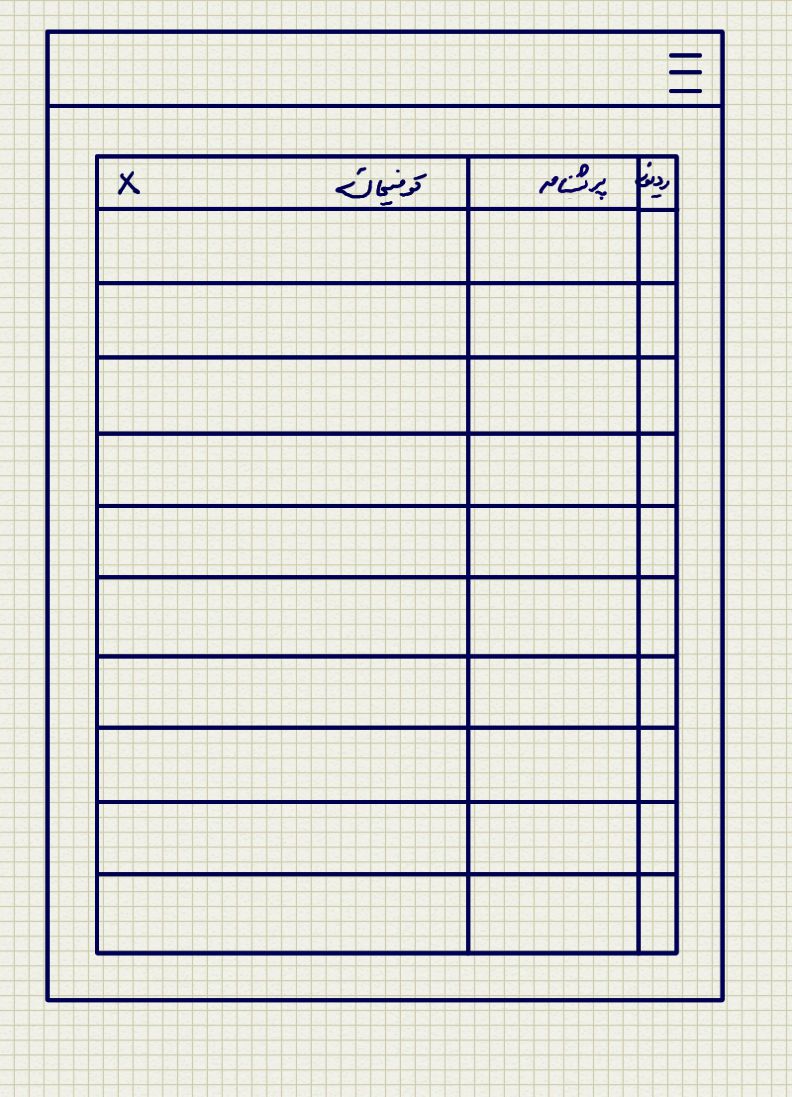 ردیف پرسشنامه توضیحات X